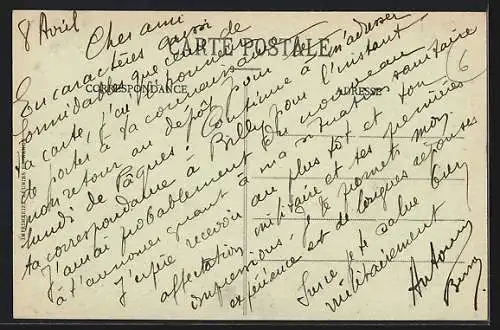 8 Avril
Cher ami
CARTE POSTALE
CORRESPONDANCE
ADRESSE
6
En caractères aussi
formidables que ceux de
ta carte, j'ai l'honneur
de porter à ta connaissance
mon retour au dépôt pour
lundi de Pâques. Continue à m'adresser
ta correspondance à Billy pour l'instant
J'aurai probablement du nouveau
à t'annoncer quant à ma situation sanitaire
J'espère recevoir au plus tôt ton
affectation militaire et tes premières
impressions. Je te promets mon
expérience et de longues réponses
Sur ce je te salue bien
militairement
Antonin